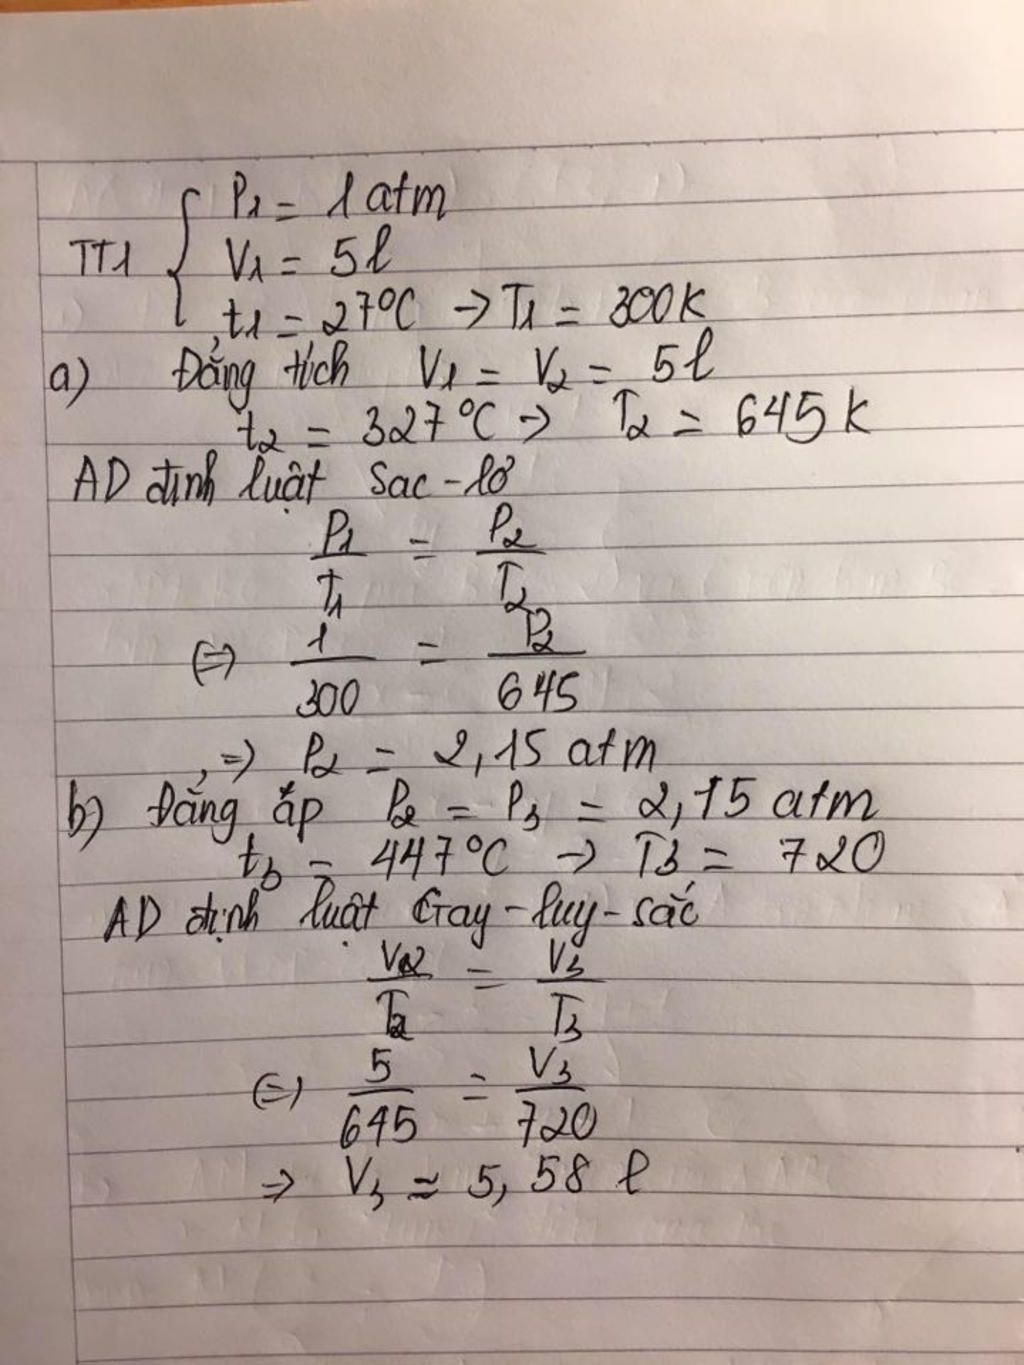 TT1 { P1 = 1 atm
V1 = 5l
t1 = 27°C → T1 = 300K
a) Đẳng tích V1 = V2 = 5l
t2 = 327°C → T2 = 645K
AD định luật Sac-lơ
P1/T1 = P2/T2
(=) 1/300 = P2/645
=) P2 = 2,15 atm
b) Đẳng áp P2 = P3 = 2,15 atm
t3 = 447°C → T3 = 720
AD định luật Gay-luy-sắc
V2/T2 = V3/T3
(=) 5/645 = V3/720
=> V3 ≈ 5,58 l